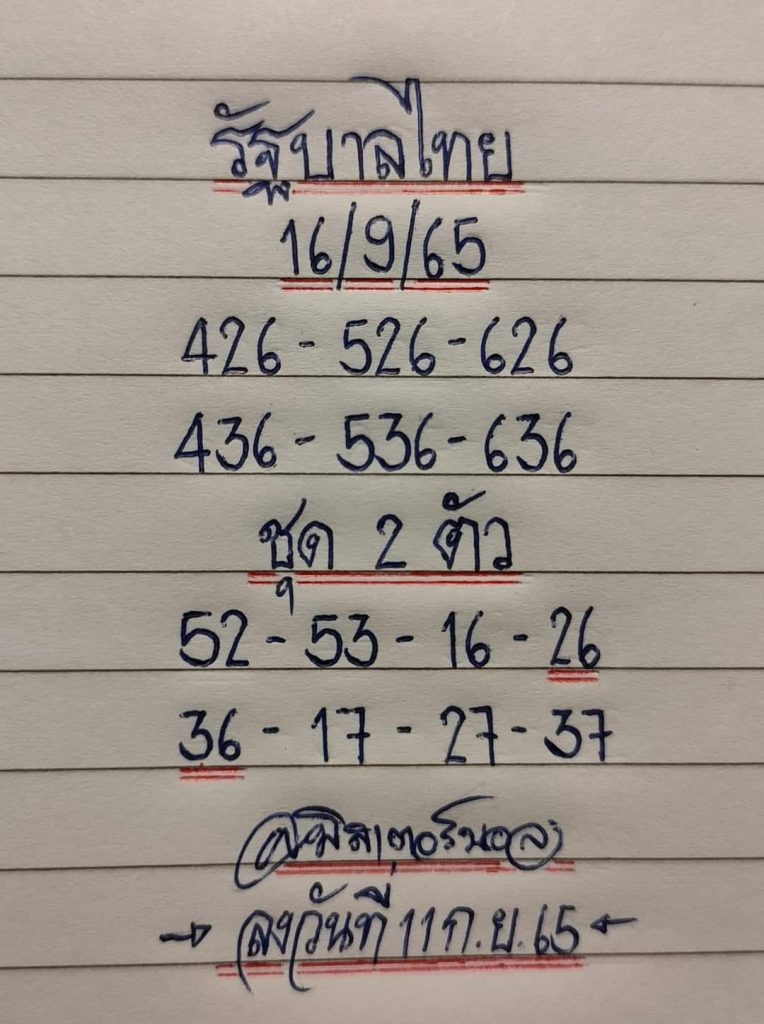 รัฐบาลไทย
16/9/65
426 - 526 - 626
436 - 536 - 636
ชุด 2 ตัว
52 - 53 - 16 - 26
36 - 17 - 27 - 37
มิสเตอร์บอล
→ ลงวันที่ 11 ก.ย. 65 ←